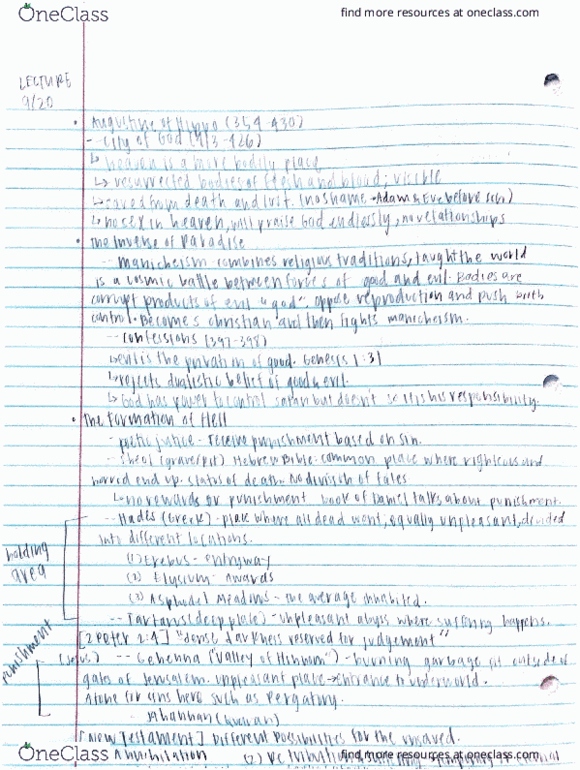 OneClass
find more resources at oneclass.com
LECTURE
9/20
• Augustine of Hippo (354-430)
-- City of God (413-426)
↳ heaven is a more bodily place
↳ resurrected bodies of flesh and blood; visible
↳ saved from death and lust. (no shame → Adam & Eve before sin)
↳ no sex in heaven, will praise God endlessly, no relationships
• The Inverse of Paradise
-- manicheism - combines religious traditions, taught the world
is a cosmic battle between forces of good and evil. Bodies are
corrupt products of evil "god". oppose reproduction and push birth
control. Becomes christian and then fights manicheism.
-- Confessions (397-398)
↳ evil is the privation of good. Genesis 1:31
↳ rejects dualistic belief of good & evil.
↳ God has power to control satan but doesn't so it is his responsibility.
• The Formation of Hell
- poetic justice - receive punishment based on sin.
- sheol (grave/pit) Hebrew Bible - common place where righteous and
end up. status of death. No division of fates
↳ no rewards or punishment book of Daniel talks about punishment.
-- Hades (Greek) - place where all dead went, equally unpleasant, divided
into different locations.
holding area
(1) Erebus - entryway
(2) Elysium - awards
(3) Asphodel Meadows - the average inhabited.
-- Tartarus (deep place) - unpleasant abyss where suffering happens.
[2 Peter 2:4] "dense darkness reserved for judgement"
punishment
(Jesus) -- Gehenna ("Valley of Hinnom") - burning garbage pit outside of
gates of Jerusalem. unpleasant place → entrance to underworld.
Atone for sins here such as Pergatory.
- Jahannan (Quran)
[New Testament] Different possibilities for the unsaved.
Annihilation (2)
OneClass
find more resources at oneclass.com